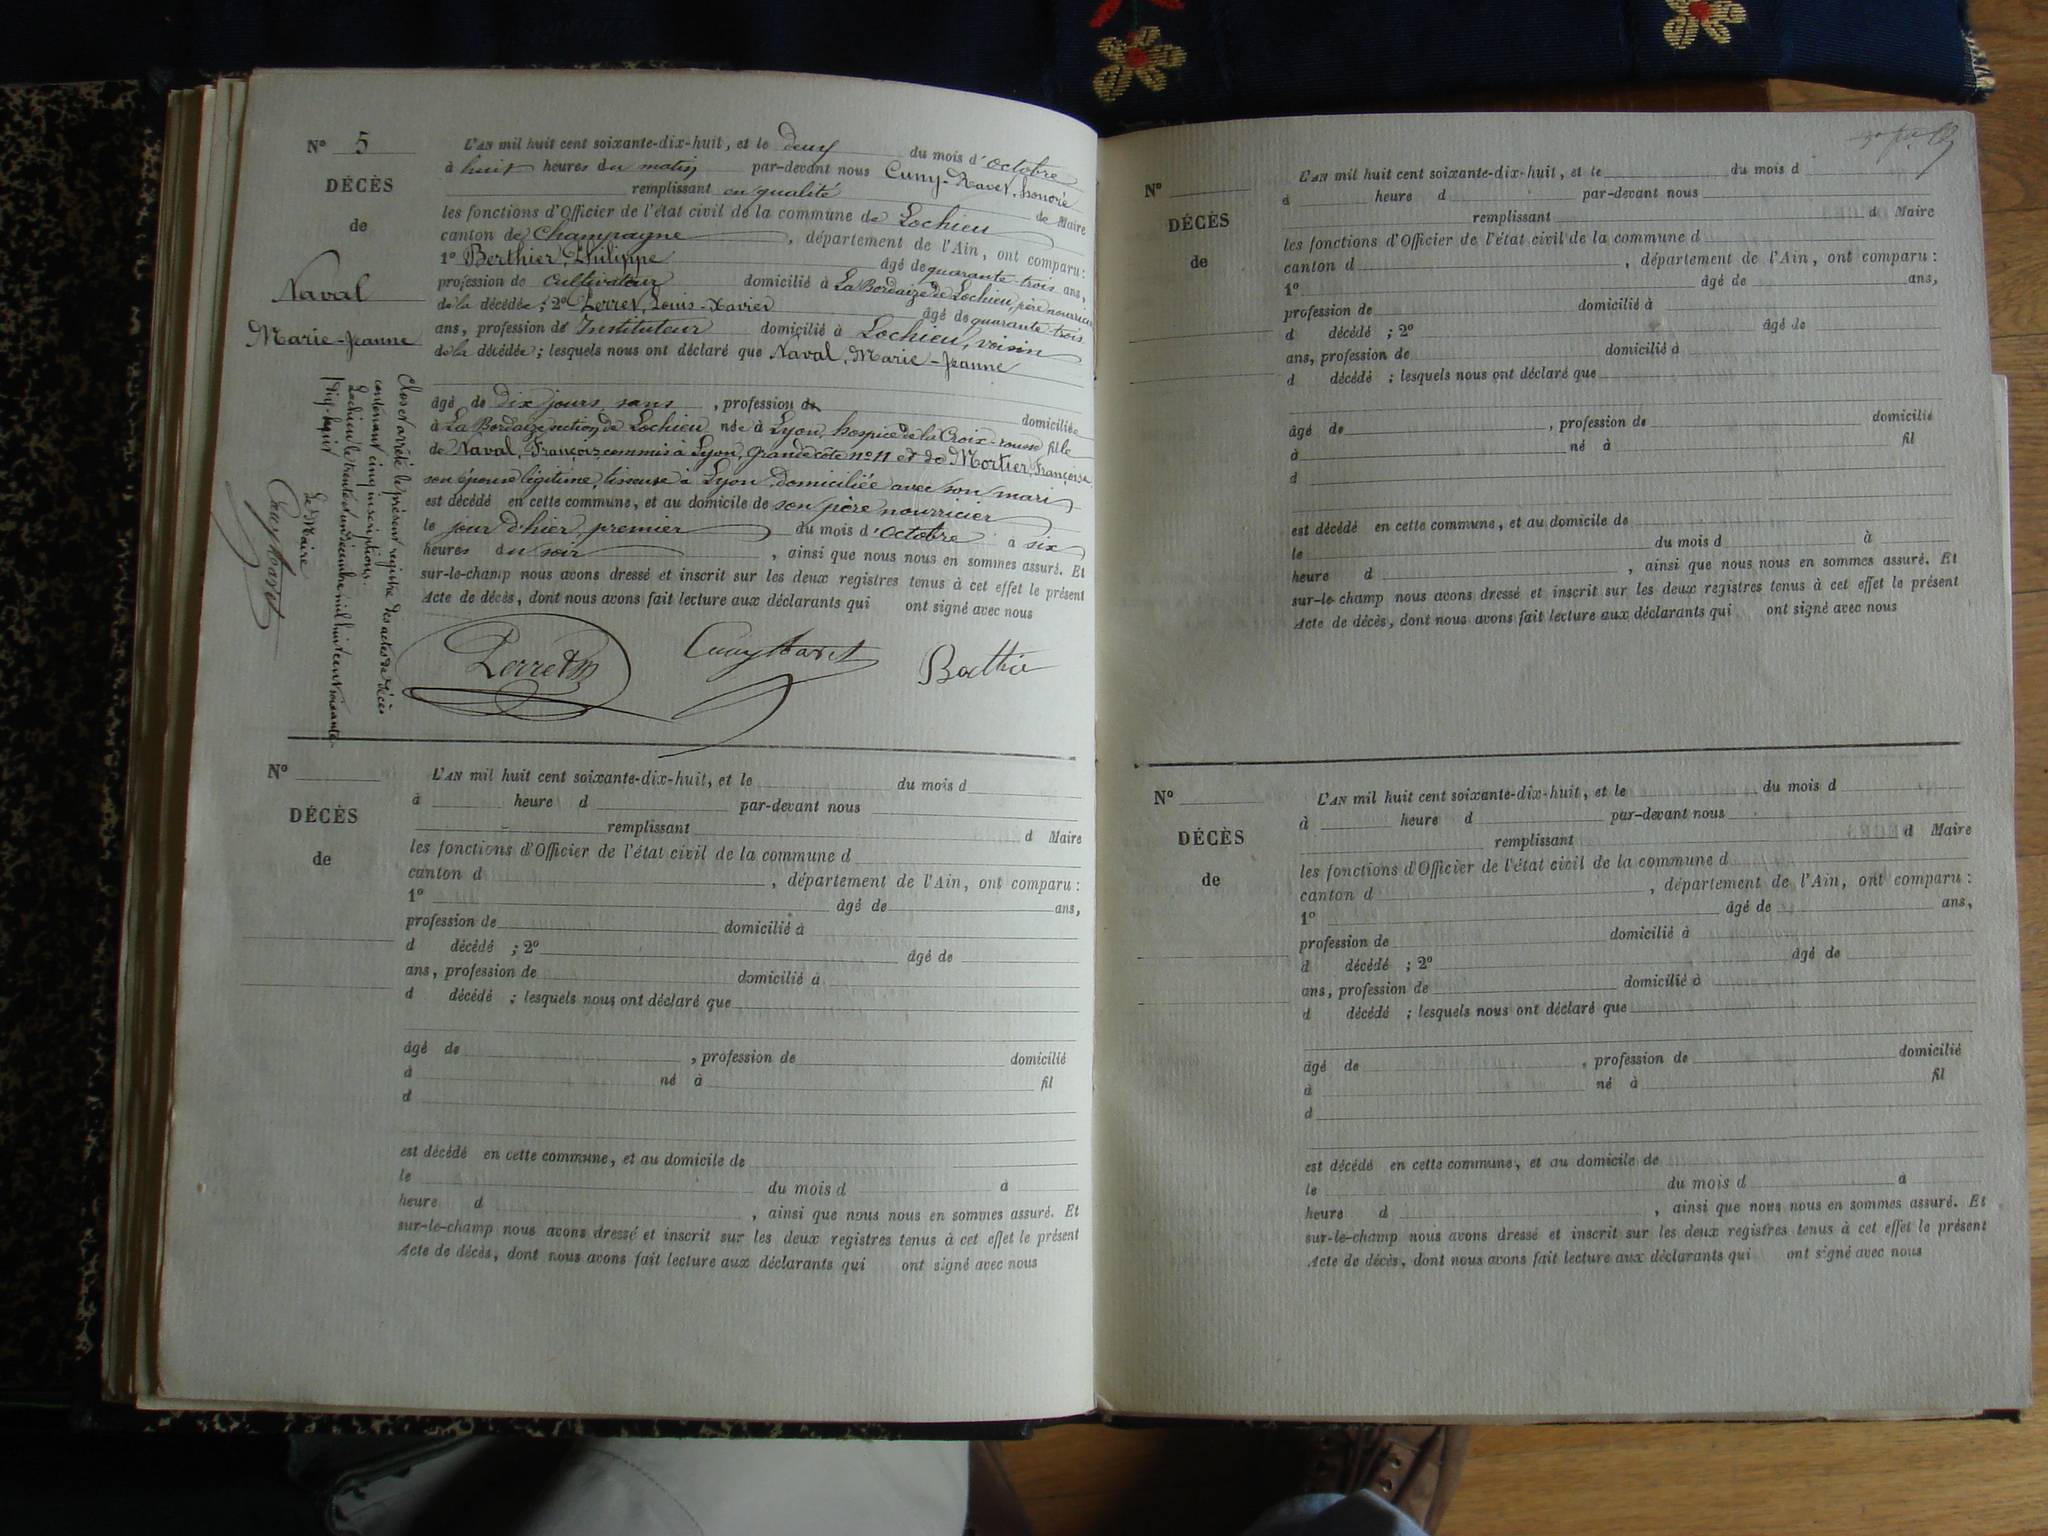 N° 5
DÉCÈS
de
Naval
Marie-Jeanne
L'AN mil huit cent soixante-dix-huit, et le deux du mois d'octobre
à huit heures du matin par-devant nous Cuny-Ravet, honoré
remplissant en qualité de Maire
les fonctions d'Officier de l'état civil de la commune de Lochieu
canton de Champagne, département de l'Ain, ont comparu :
1° Berthier, Philippe âgé de quarante-trois ans,
profession de cultivateur domicilié à La Bordaize de Lochieu, père nourricier
de la décédée ; 2° Perret, Louis-Xavier âgé de quarante-trois
ans, profession de Instituteur domicilié à Lochieu, voisin
de la décédée ; lesquels nous ont déclaré que Naval, Marie-Jeanne
âgé de dix jours, sans, profession de domiciliée
à La Bordaize section de Lochieu née à Lyon, hospice de la Croix-rousse fille
de Naval, François, commis à Lyon, grande côte n° 11 et de Mortier, Françoise
son épouse légitime, tisseuse à Lyon, domiciliée avec son mari
est décédé en cette commune, et au domicile de son père nourricier
le jour d'hier, premier du mois d'octobre à six
heures du soir, ainsi que nous nous en sommes assuré. Et
sur-le-champ nous avons dressé et inscrit sur les deux registres tenus à cet effet le présent
Acte de décès, dont nous avons fait lecture aux déclarants qui ont signé avec nous
Cuny Ravet
Berthier
Clos et arrêté le présent registre des actes de décès
contenant cinq inscriptions.
Lochieu le trente et un décembre mil huit cent soixante-
dix-huit
Le Maire
Cuny Ravet
N°
DÉCÈS
de
L'AN mil huit cent soixante-dix-huit, et le du mois d
à heure d par-devant nous
remplissant d Maire
les fonctions d'Officier de l'état civil de la commune d
canton d , département de l'Ain, ont comparu :
1° âgé de ans,
profession de domicilié à
d décédé ; 2° âgé de
ans, profession de domicilié à
d décédé ; lesquels nous ont déclaré que
âgé de , profession de domicilié
à né à fil
d
est décédé en cette commune, et au domicile de
le du mois d à
heure d , ainsi que nous nous en sommes assuré. Et
sur-le-champ nous avons dressé et inscrit sur les deux registres tenus à cet effet le présent
Acte de décès, dont nous avons fait lecture aux déclarants qui ont signé avec nous
N°
DÉCÈS
de
L'AN mil huit cent soixante-dix-huit, et le du mois d
à heure d par-devant nous
remplissant d Maire
les fonctions d'Officier de l'état civil de la commune d
canton d , département de l'Ain, ont comparu :
1° âgé de ans,
profession de domicilié à
d décédé ; 2° âgé de
ans, profession de domicilié à
d décédé ; lesquels nous ont déclaré que
âgé de , profession de domicilié
à né à fil
d
est décédé en cette commune, et au domicile de
le du mois d à
heure d , ainsi que nous nous en sommes assuré. Et
sur-le-champ nous avons dressé et inscrit sur les deux registres tenus à cet effet le présent
Acte de décès, dont nous avons fait lecture aux déclarants qui ont signé avec nous
N°
DÉCÈS
de
L'AN mil huit cent soixante-dix-huit, et le du mois d
à heure d par-devant nous
remplissant d Maire
les fonctions d'Officier de l'état civil de la commune d
canton d , département de l'Ain, ont comparu :
1° âgé de ans,
profession de domicilié à
d décédé ; 2° âgé de
ans, profession de domicilié à
d décédé ; lesquels nous ont déclaré que
âgé de , profession de domicilié
à né à fil
d
est décédé en cette commune, et au domicile de
le du mois d à
heure d , ainsi que nous nous en sommes assuré. Et
sur-le-champ nous avons dressé et inscrit sur les deux registres tenus à cet effet le présent
Acte de décès, dont nous avons fait lecture aux déclarants qui ont signé avec nous